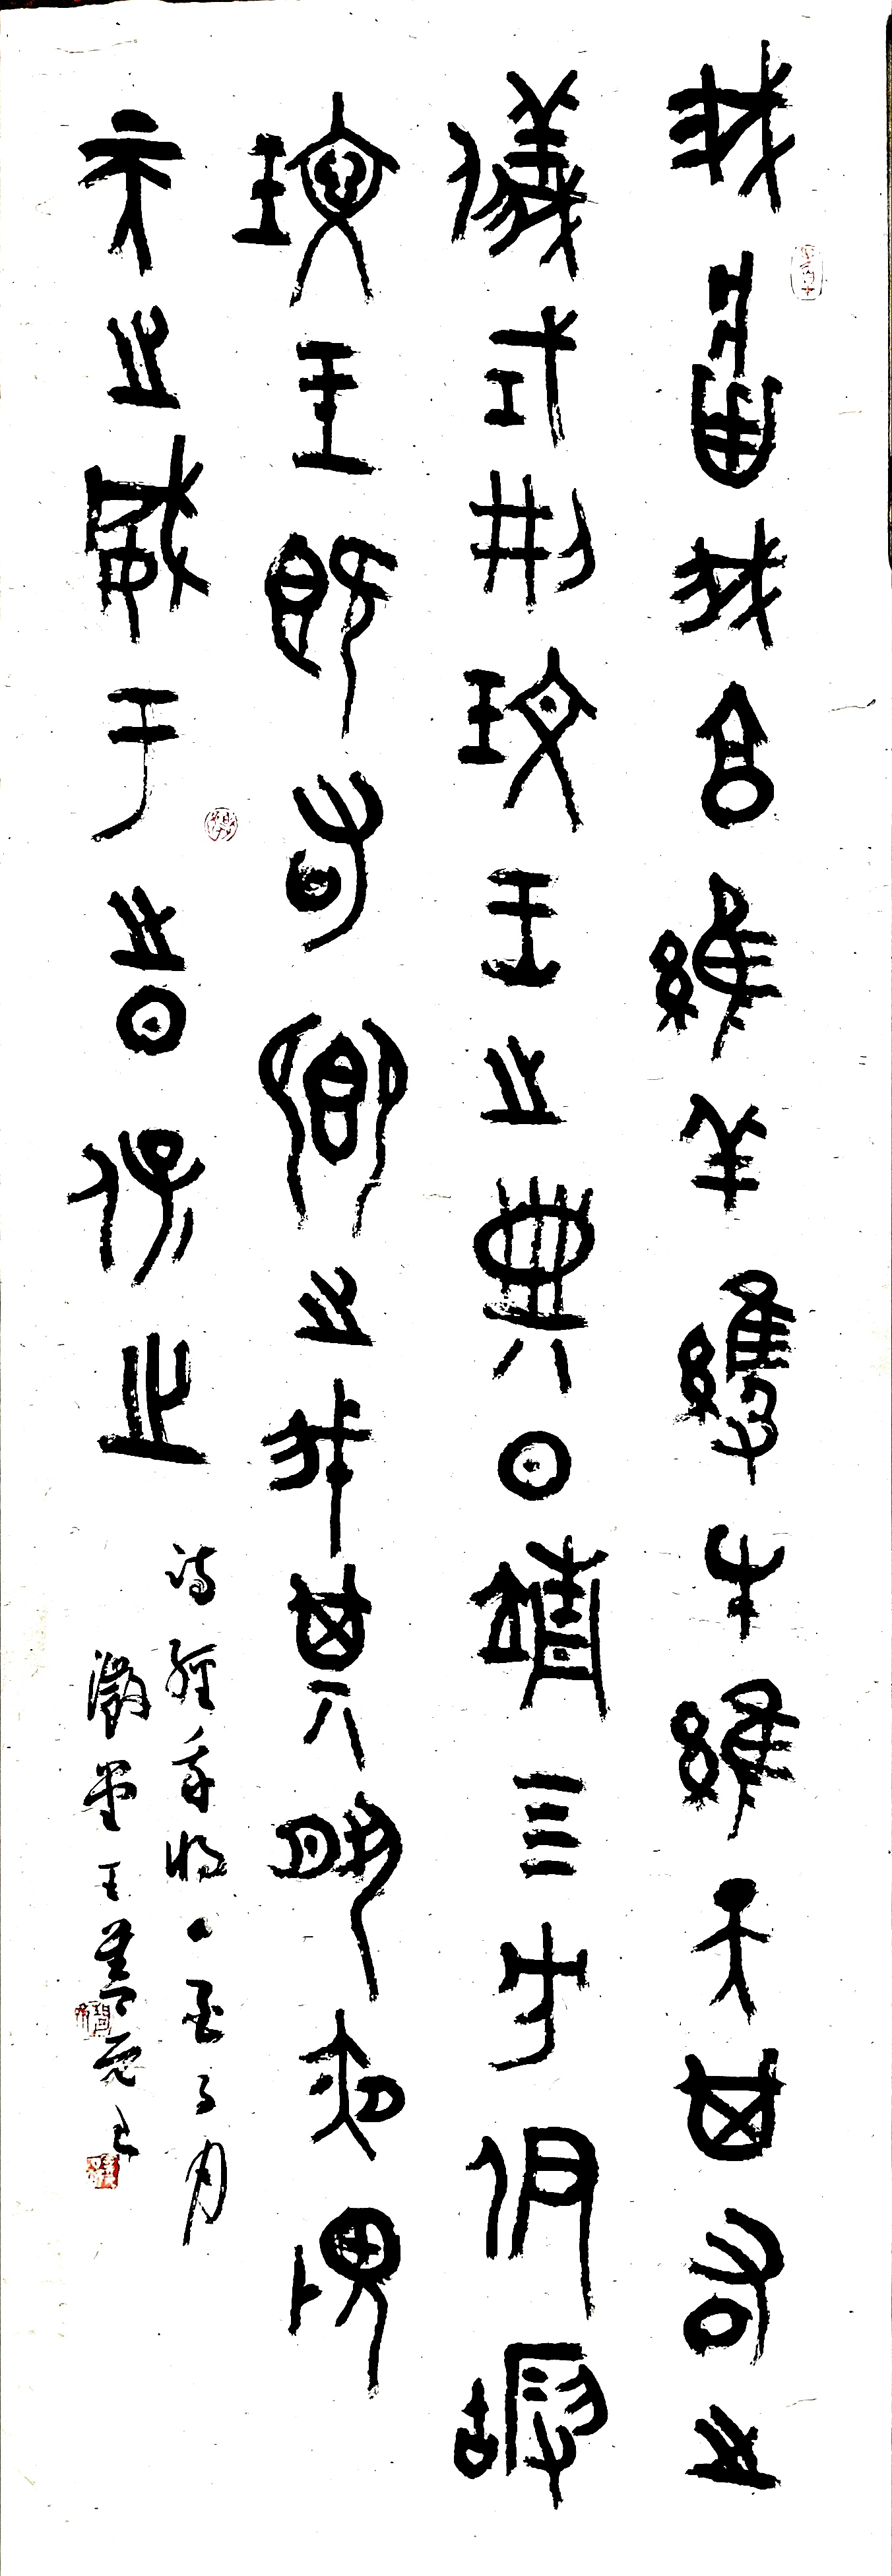 我將我享維羊維牛維天其右之
儀式刑玟王之典日靖亖方伊嘏
玟王既右卿之我其夙夜畏
天之威于時保之
詩經我將